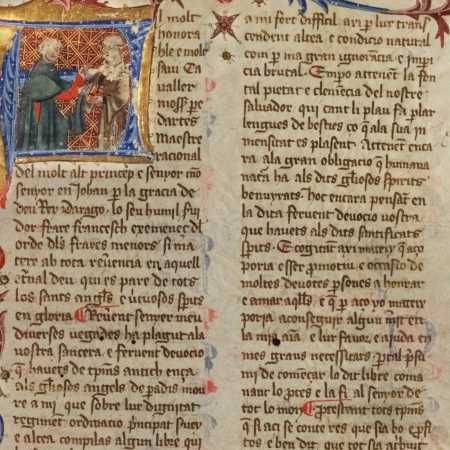 l molt
honora
ble e mol
saui Ca
valler
moss pe
dartes
Maestre
racional
del molt alt princep e senyor mo
senyor en Johan p la gracia de
deu Rey Darago. lo seu humil fui
dor frare francesch eximenez dl
orde dls frares menors si ma
tex ab tota reuerencia en aquell
etnal deu qui es pare de tots
los sants angls e uirtuosos spits
en gloria Reuerent senyer meu
diuerses vegades ha plagut ala
vostra sauicea e feruent deuocio
q hauets de tpms antich ença
als glosos angels de padis mou
re ami que sobre lur dignitat
regiment ordinacio pncipat suey
e altea compilas algun libre qui
a mi fort dificil axi p lur trans
cendent altea e condicio natural
com p ma gran ignorancia e impicia
brutal. Empo attenent la fon
tal pietat e clemecia del nostre
saluador qui cant li plau fa plar
lengues de besties co q ala sua in
mensitat es plasent. Attenent enca
ra ala gran obligacio q humana
natia ha als dits glosos spirits
benuyrats. hoc encara pensat en
la dita feruent deuocio vostra
que hauets als dits santificats
spits. E cogitant axi mateix q aço
poria esser pmotiu e occasio de
moltes deuotes psones a honrar
e amar aqlls e q p aço yo mateix
poria aconseguir algun mit en
la mia aia e lur fauor e aiuda en
mes grans necessitats. ptal psu
mi de comecar lo dit libre coma
nant lo pces e la fi al senyor de
tot lo mon prestant tots tpms
q si aci se conte res que sia bo pfi
tos e ben dit que tot sia atbuit